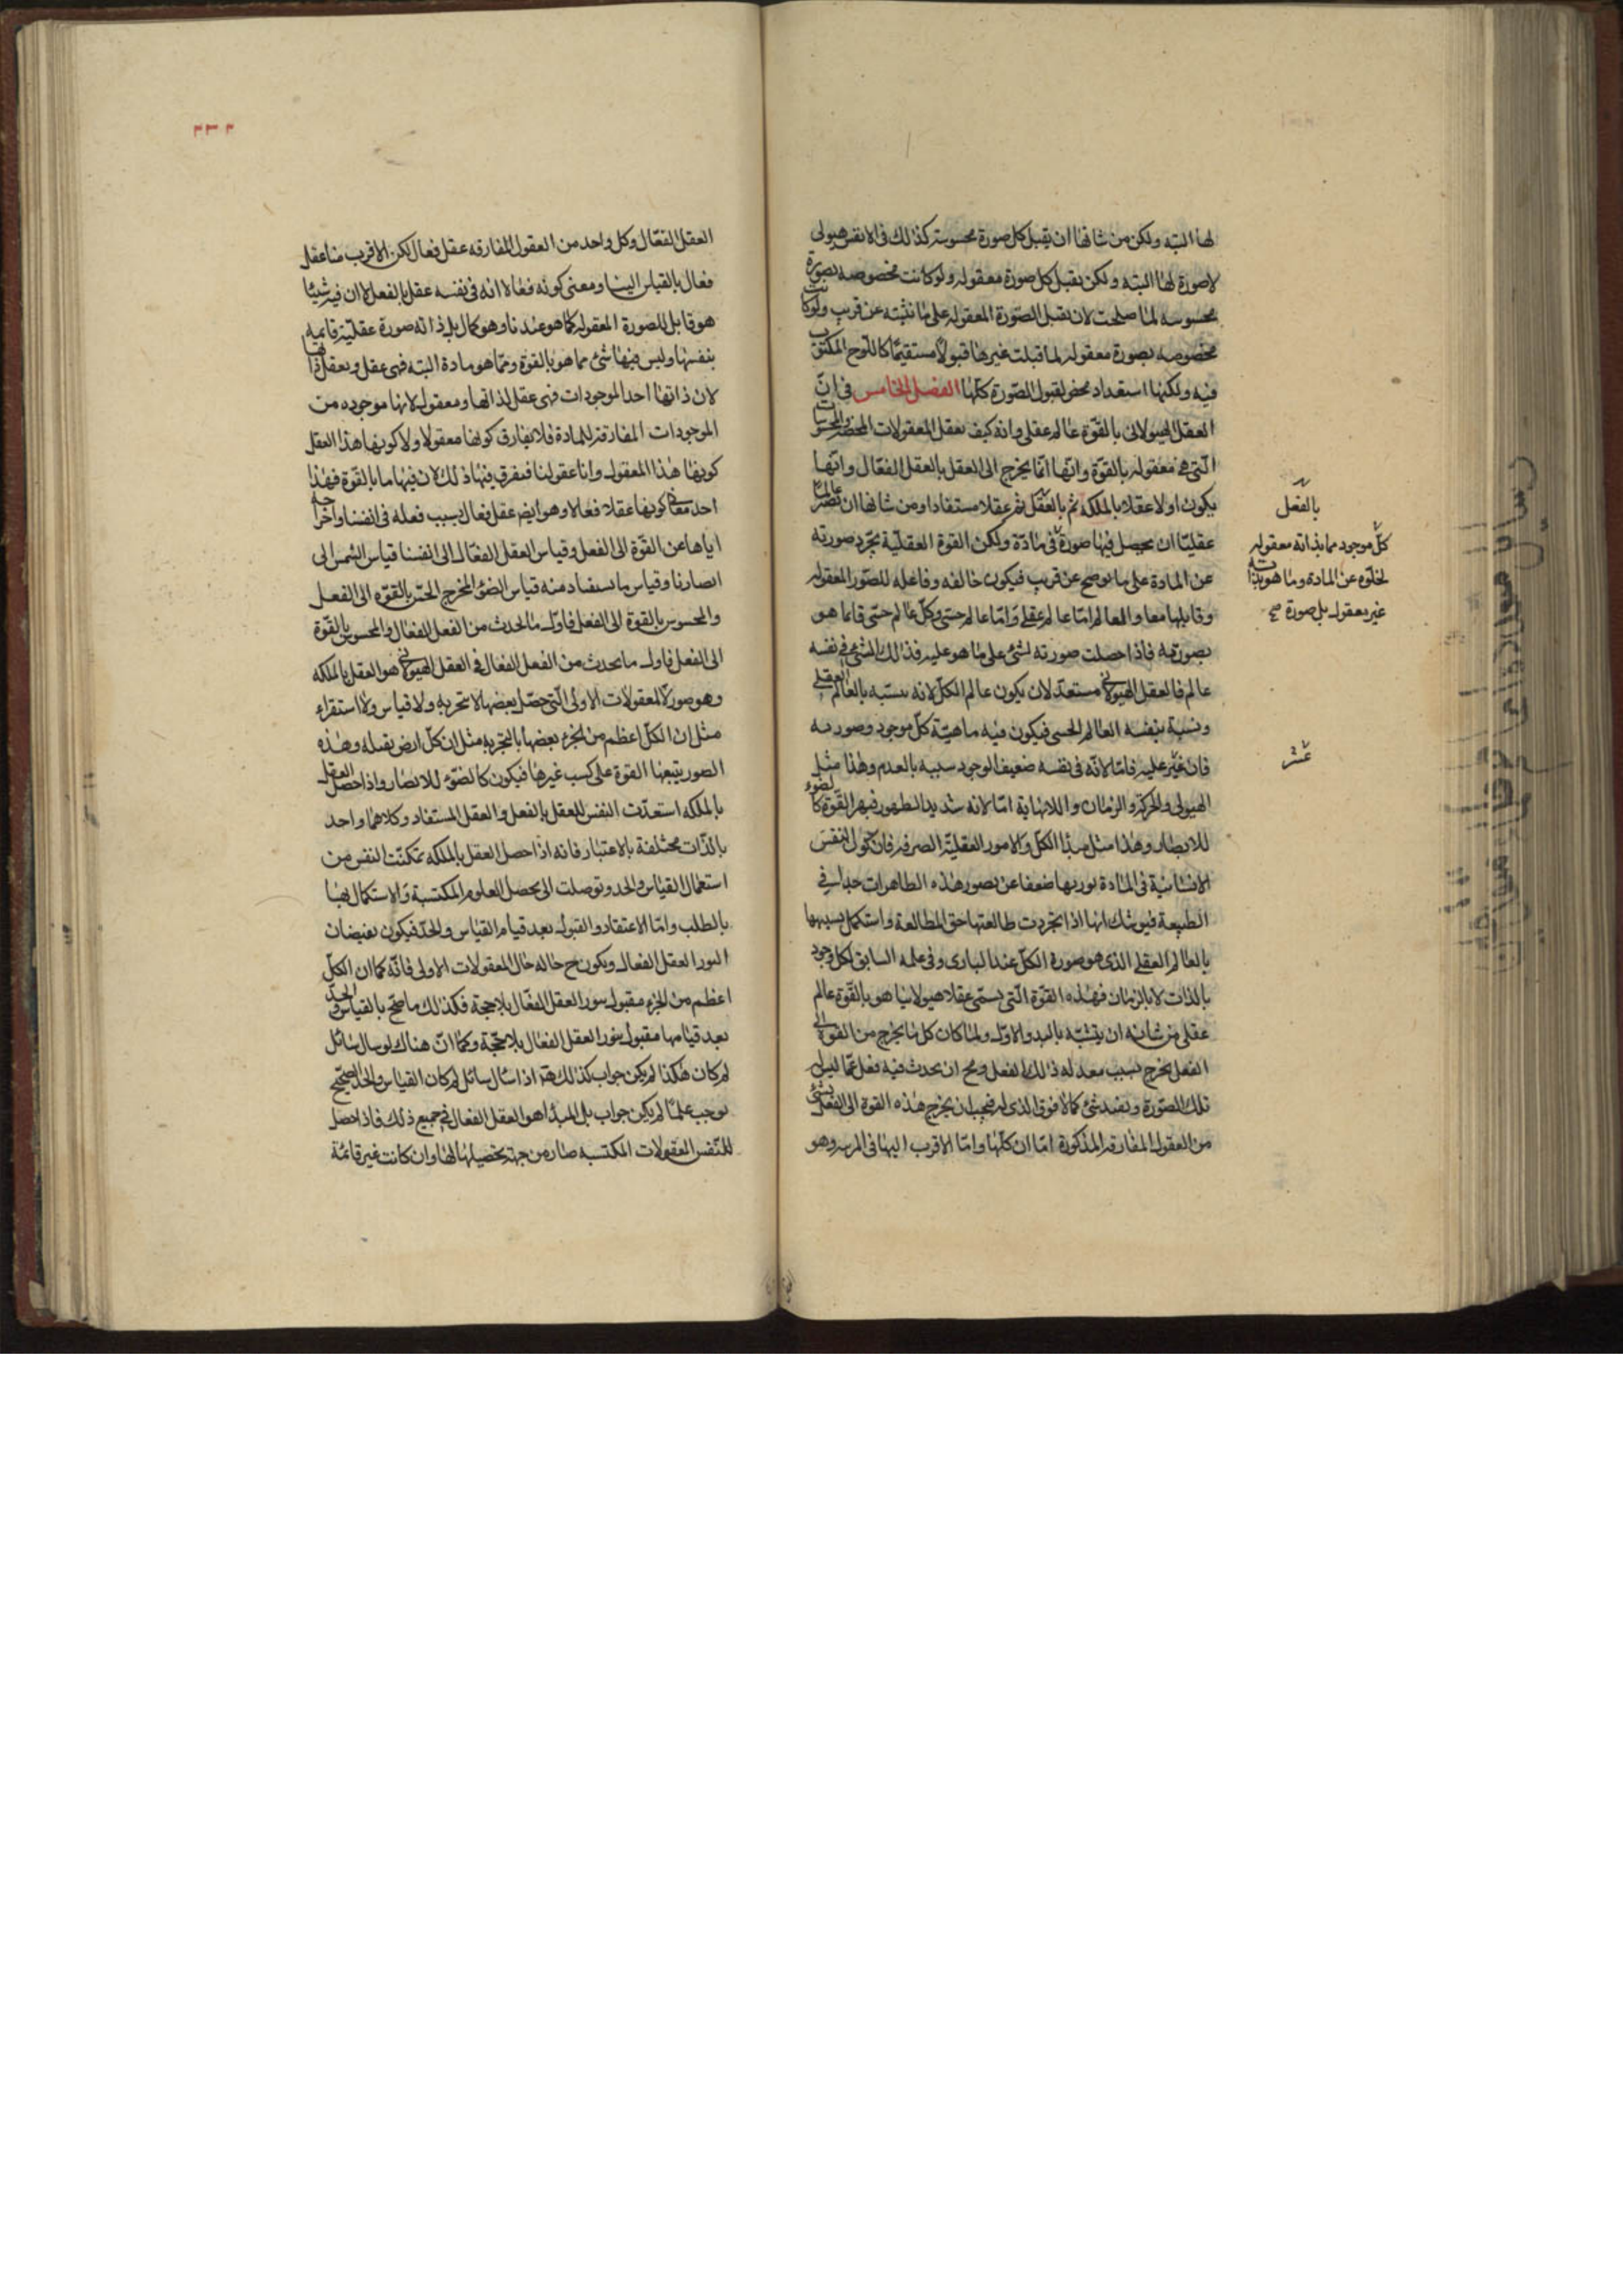 لها البته ولكن من شانها ان يقبل كل صورة محسوسة كذلك فى الانفس هيولى
لا صورة لها البته ولكن يقبل كل صورة معقوله ولو كانت مخصوصه بصورة
محسوسه لما صلحت لان يقبل الصّورة المعقوله على ما نثبته عن قريب ولو كانت
مخصوصه بصورة معقوله لما قبلت غيرها قبولا مستقيمًا كاللّوح المكتوب
فيه ولكنها استعداد محض لقبول الصّورة كلّها الفصل الخامس فى انّ
العقل الهيولانى بالقوّة عالم عقلى وانه كيف يعقل المعقولات المحضة والمحسوسات
الّتى هى معقوله بالقوّة وانّها انّما يخرج الى العقل بالعقل الفعّال وانّها
يكون اولا عقلا بالملكه ثم بالعقل ثم عقلا مستفادا ومن شانها ان تصير عالما
عقليّا ان يحصل فيها صورة فى مادّة ولكن القوة العقليّة يجرّد صورته
عن المادة على ما نوضح عن قريب فيكون خالفه وفاعله للصّور المعقوله
وقابلها معا والعالم امّا عالم عقلى وامّا عالم حسّى وكلّ عالم حسّى فانما هو
بصورته فاذا حصلت صورته لشئ على ما هو عليه فذلك الشئ فى نفسه
عالم فالعقل الهيولانى مستعدّ لان يكون عالم الكلّ لانه يتشبه بالعالم العقلى
ونسبة بنفسه العالم الحسى فيكون فيه ماهيّة كلّ موجود وصورته
فان عسّر عليه فامّا لانّه فى نفسه ضعيف الوجود سبيه بالعدم وهذا مثل
الهيولى والحركة والزمان واللانهاية امّا لانه شديد الظهور فبهر القوّة كالضوء
للابصار وهذا مثل مبدأ الكلّ والامور العقليّة الصرفة فان كون النفس
الانسانية فى المادة يورثها ضعفا عن تصور هذه الظاهرات جدا فى
الطبيعة فيوشك انها اذا تجردت طالعتها حق المطالعة واستكمل تشبهها
بالعالم العقلى الذى هو صورة الكلّ عند البارى وفى علمه السابق لكل وجود
بالذات لا بالزمان فهذه القوّة الّتى يسمّى عقلا هيولانيا هو بالقوّة عالم
عقلى من شانه ان يتشبّه بالمبدء الاوّل ولما كان كل ما يخرج من القوة الى
الفعل يخرج بسبب معد له ذلك الفعل ومح ان يحدث فيه فعل عمّا ليس له
تلك الصّورة ويفيد شئ كمالا فوق الذى له فيجب ان يخرج هذه القوة الى الفعل بشئ
من العقول المفارقه المذكورة امّا ان كلّها وامّا الاقرب اليها فى المرتبه وهو
بالفعل
كلّ موجود مما بذاته معقوله
لخلوّه عن المادة وما هو بذاته
غير معقول بل صورة صح
عسر
٢٣٢
العقل الفعّال وكل واحد من العقول المفارقه عقل فعال لكن الاقرب منا عقل
فعال بالقياس الينا ومعنى كونه فعالا انه فى نفسه عقل بالفعل لا ان فيه شيئا
هو قابل للصورة المعقوله كما هو عندنا وهو كمال بل ذاته صورة عقليّة قايمه
بنفسها وليس فيها شئ مما هو بالقوة وممّا هو مادة البته فهى عقل ويعقل ذاتها
لان ذاتها احد الموجودات فهى عقل لذاتها ومعقوله لانها موجوده من
الموجودات المفارقة للمادة فلا يفارق كونها معقولا ولا كونها هذا العقل
كونها هذا المعقول وانا عقولنا فيفرق فيها ذلك لان فيها ما بالقوّة فهذا
احد معانى كونها عقلا فعالا وهو ايضا عقل فعال بسبب فعله فى انفسنا واخراجه
اياها عن القوّة الى الفعل وقياس العقل الفعّال الى انفسنا قياس الشمس الى
ابصارنا وقياس ما يستفاد منه قياس الضوء المخرج الحسّ بالقوّه الى الفعل
والمحسوس بالقوة الى الفعل فاوّل ما يحدث من الفعل الفعّال والمحسوس بالقوّة
الى الفعل فاول ما يحدث من الفعل الفعال فى العقل الهيولانى هو العقل بالملكه
وهو صورة المعقولات الاولى الّتى حصل بعضها لا بتجربه ولا قياس ولا استقراء
مثل ان الكلّ اعظم من الجزء بعضها بالتجربه مثل ان كلّ ارض ثقيله وهذه
الصور يتبعها القوة على كسب غيرها فيكون كالضوّء للابصار واذا حصل العقل
بالملكه استعدّت النفس للعقل بالفعل والعقل المستفاد وكلاهما واحد
بالذات مختلفة بالاعتبار فانه اذا حصل العقل بالملكه تمكنت النفس من
استعمال القياس والحد وتوصلت الى تحصل العلوم المكتسبة والاستكمال بها
بالطلب وامّا الاعتقاد والقبول بعد قيام القياس والحدّ فيكون بفيضان
النور العقل الفعال ويكون ح حاله حال المعقولات الاولى فانّه كما ان الكلّ
اعظم من الجزء مقبول بنور العقل الفعّال بلا حجة فكذلك ما صحّ بالقياس والحدّ
بعد قيامها مقبول بنور العقل الفعال بلا حجّة وكما انّ هناك لو سال سائل
لم كان هكذا لم يكن جواب كذلك هنا اذا سئال سائل لم كان القياس والحدّ الصحيح
يوجب علمّا لم يكن جواب بل المبدا هو العقل الفعال فى جميع ذلك فاذا حصل
للنّفس المعقولات المكتسبه صار من جهة تحصيلها لها وان كانت غير قائمة